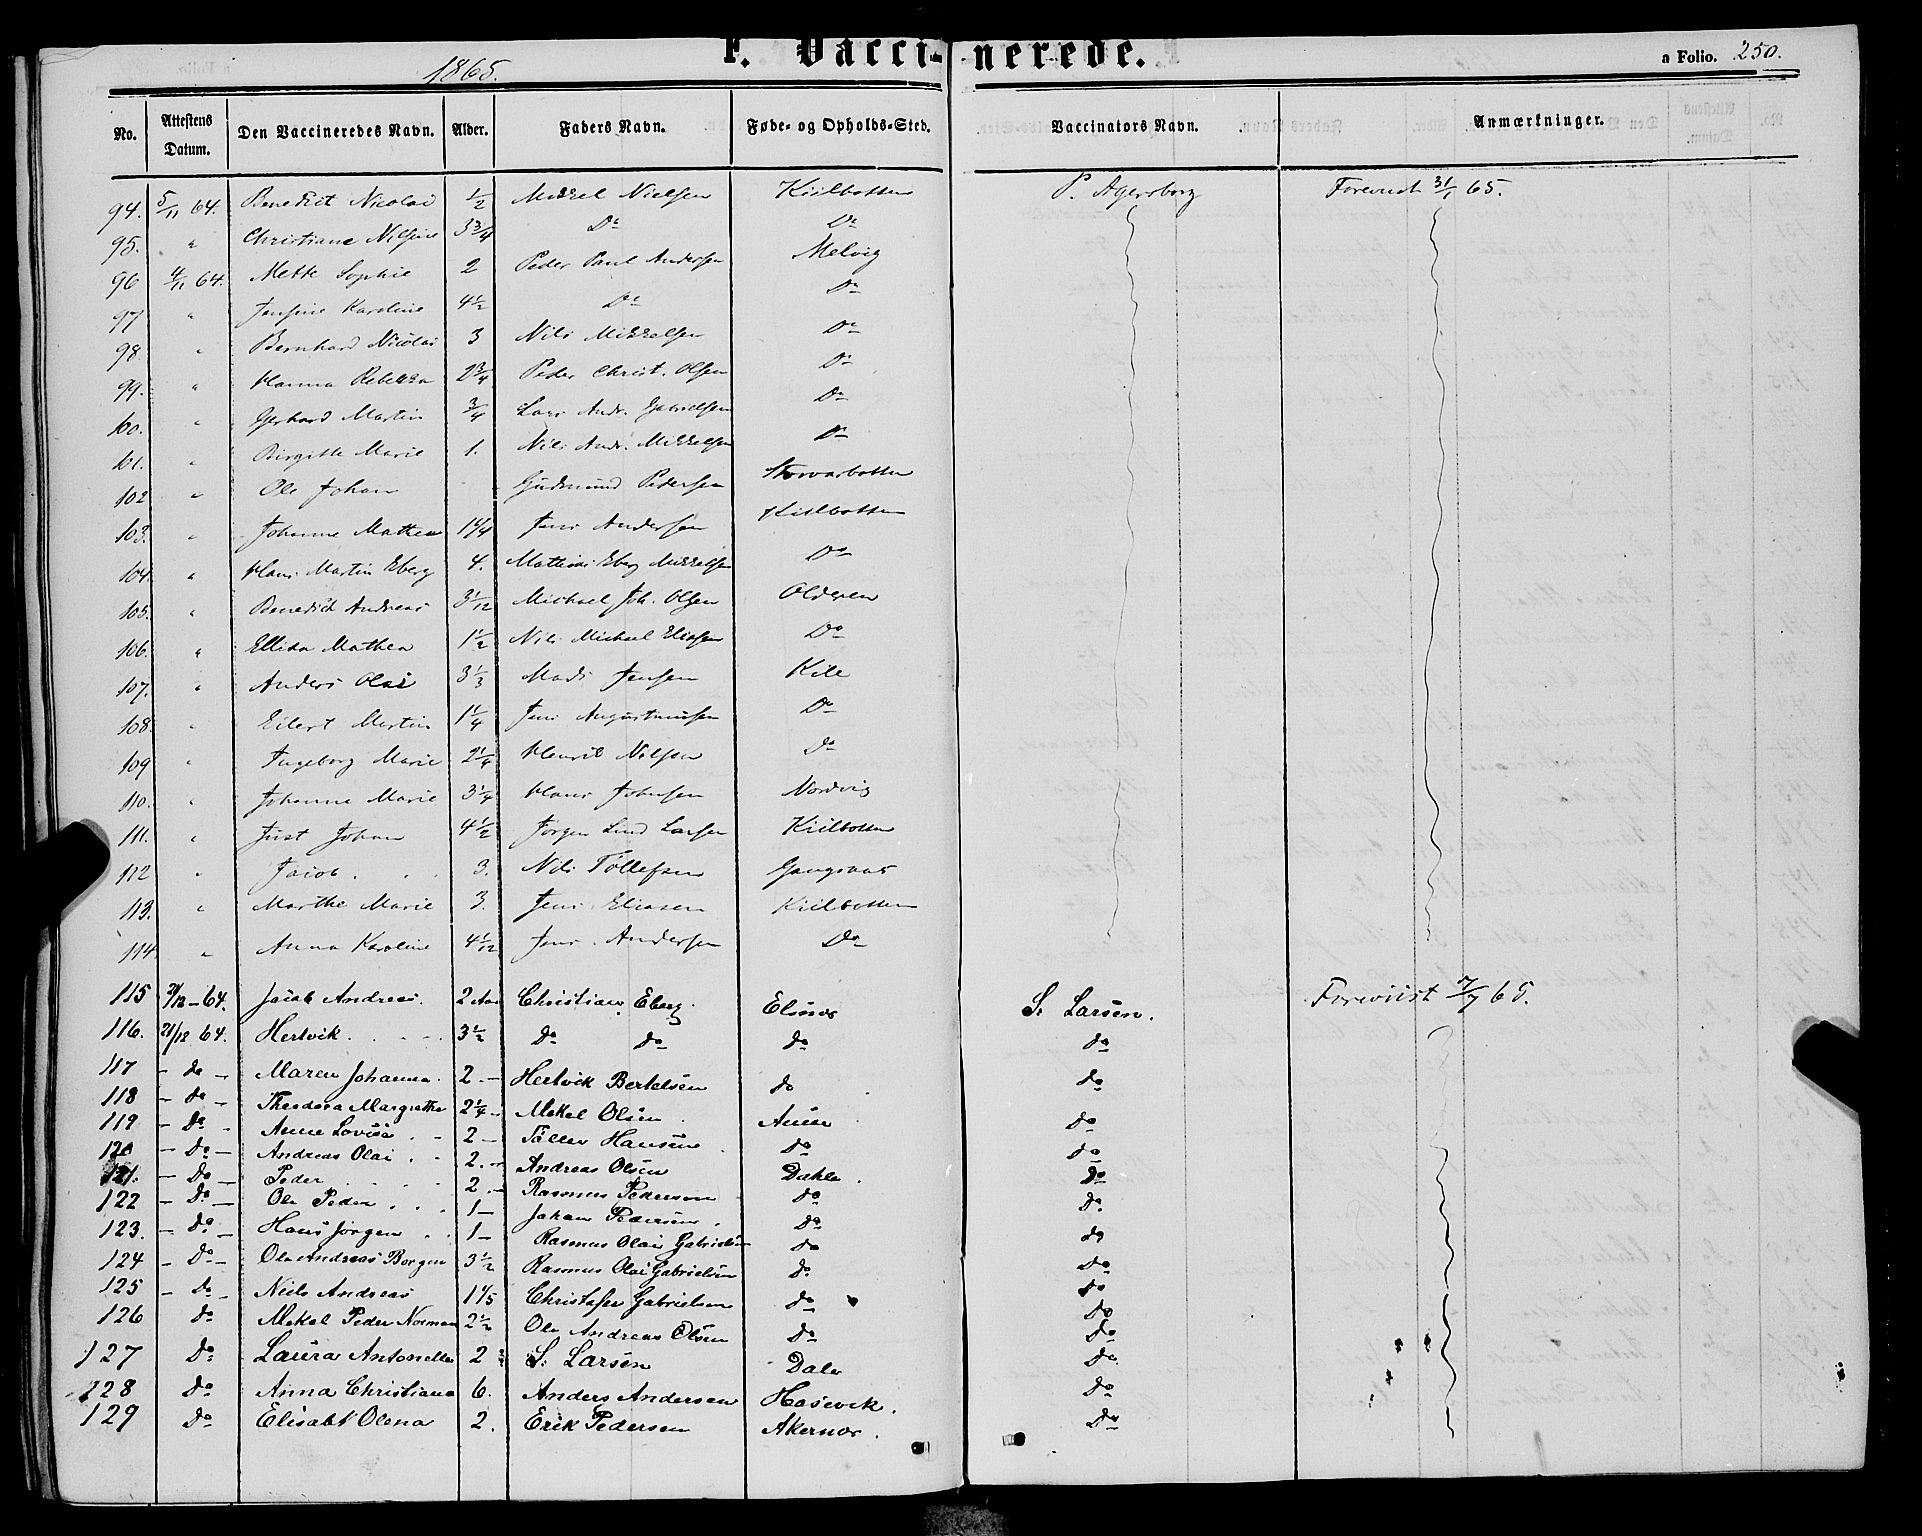 1865.
F. Vaccinerede.
a Folio. 250.
No. Attestens Datum. Den Vaccineredes Navn. Alder. Faders Navn. Føde- og Opholds-Sted. Vaccinators Navn. Anmærkninger.
94. 5/11 64. Benedict Nicolai 1/2 Mikkel Nielsen Kiilbotten P. Agersborg Foreviist 31/1 65.
95. " Christiane Nilsine 3 3/4 Do Do
96 4/11 64. Mette Sophie 2 Peder Paul Andersen Melvig
97 " Jensine Karoline 4 1/2 Do Do
98. " Bernhard Nicolai 3 Nils Mikkelsen Do
99. " Hanna Rebekka 2 3/4 Peder Christ. Olsen Do
100. " Gerhard Martin 3/4 Lars Andr. Gabrielsen Do
101. " Birgitte Marie 1. Nils Andr. Mikkelsen Do
102 " Ole Johan Gudmund Pedersen Storvarbotten
103. " Johanne Mathea 1 1/4 Jens Andersen Kiilbotten
104. " Hans Martin Eberg 4. Mathias Eberg Mikkelsen Do
105. " Benedict Andreas 3 1/12 Michael Joh. Olsen Olderen
106. " Ellida Mathea 1 1/2 Nils Michael Eliasen Do
107. " Anders Olai 3 1/3 Mads Jensen Kile
108. " Eilert Martin 1 1/4 Jens Augustinusen Do
109 " Ingeborg Marie 2 1/4 Henrik Nilsen Do
110. " Johanne Marie 3 1/4 Hans Johnsen Nordvig
111. " Just Johan 4 1/2 Jørgen Lind Larsen Kiilbotten
112 " Jacob 3. Nils Tøllefsen Gangsaas
113. " Marthe Marie 3. Jens Eliasen Kiilbotten
114. " Anna Karoline 4 1/12 Jens Andersen Do
115 21/12 - 64. Jacob Andreas. 2 Aar Christian Eberg Elsnes S. Larsen. Foreviist 7/7 65.
116. 21/12 64. Hertvik 3 1/2 Do Do Do Do
117 - do - Maren Johanna. 2 - Hertvik Bertelsen do Do
118 - do - Theodora Margrethe 2 1/4 - Mekal Olsen Auene Do
119 - Do - Anne Lovise 2 - Töller Hansen Do Do
120 - Do - Andreas Olai 2. - Andreas Olsen Dahle Do
121. - Do - Peder 2 - Rasmus Pedersen Do Do
122 - Do - Ole Peder 1 - Johan Pedersen Do Do
123. - Do - Hans Jørgen 1 - Rasmus Olai Gabrielsen Do Do
124 - Do - Ole Andreas Borgen 3 1/2 Rasmus Olai Gabrielsen Do Do
125 - Do - Niels Andreas 1 1/5 Christofer Gabrielsen Do Do
126 Do Mekal Peder Norman 2 1/2 Ole Andreas Olsen Do Do
127 Do Laura Antonette 2 S. Larsen Dale Do
128 Do Anna Christiana 6. Anders Andersen Hasevik. Do
129 Do Elisabt Olena 2. Erik Pedersen Akernes. Do